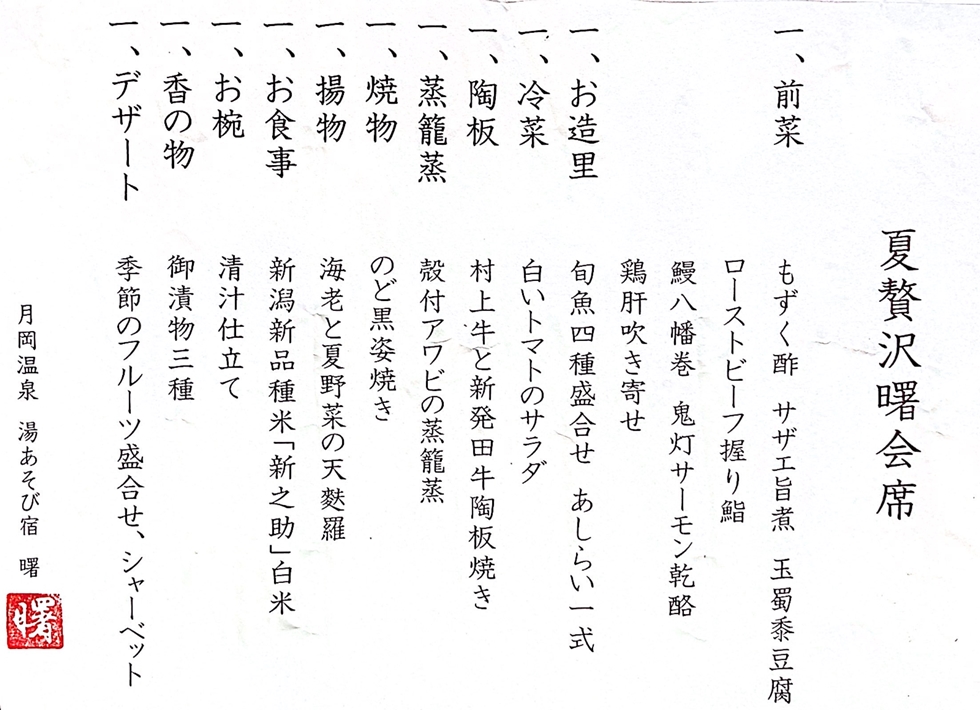 夏贅沢曙会席
一、前菜 もずく酢 サザエ旨煮 玉蜀黍豆腐
ローストビーフ握り鮨
鰻八幡巻 鬼灯サーモン乾酪
鶏肝吹き寄せ
一、お造里 旬魚四種盛合せ あしらい一式
一、冷菜 白いトマトのサラダ
一、陶板 村上牛と新発田牛陶板焼き
一、蒸籠蒸 殻付アワビの蒸籠蒸
一、焼物 のど黒姿焼き
一、揚物 海老と夏野菜の天麩羅
一、お食事 新潟新品種米「新之助」白米
一、お椀 清汁仕立て
一、香の物 御漬物三種
一、デザート 季節のフルーツ盛合せ、シャーベット
月岡温泉 湯あそび宿 曙
曙